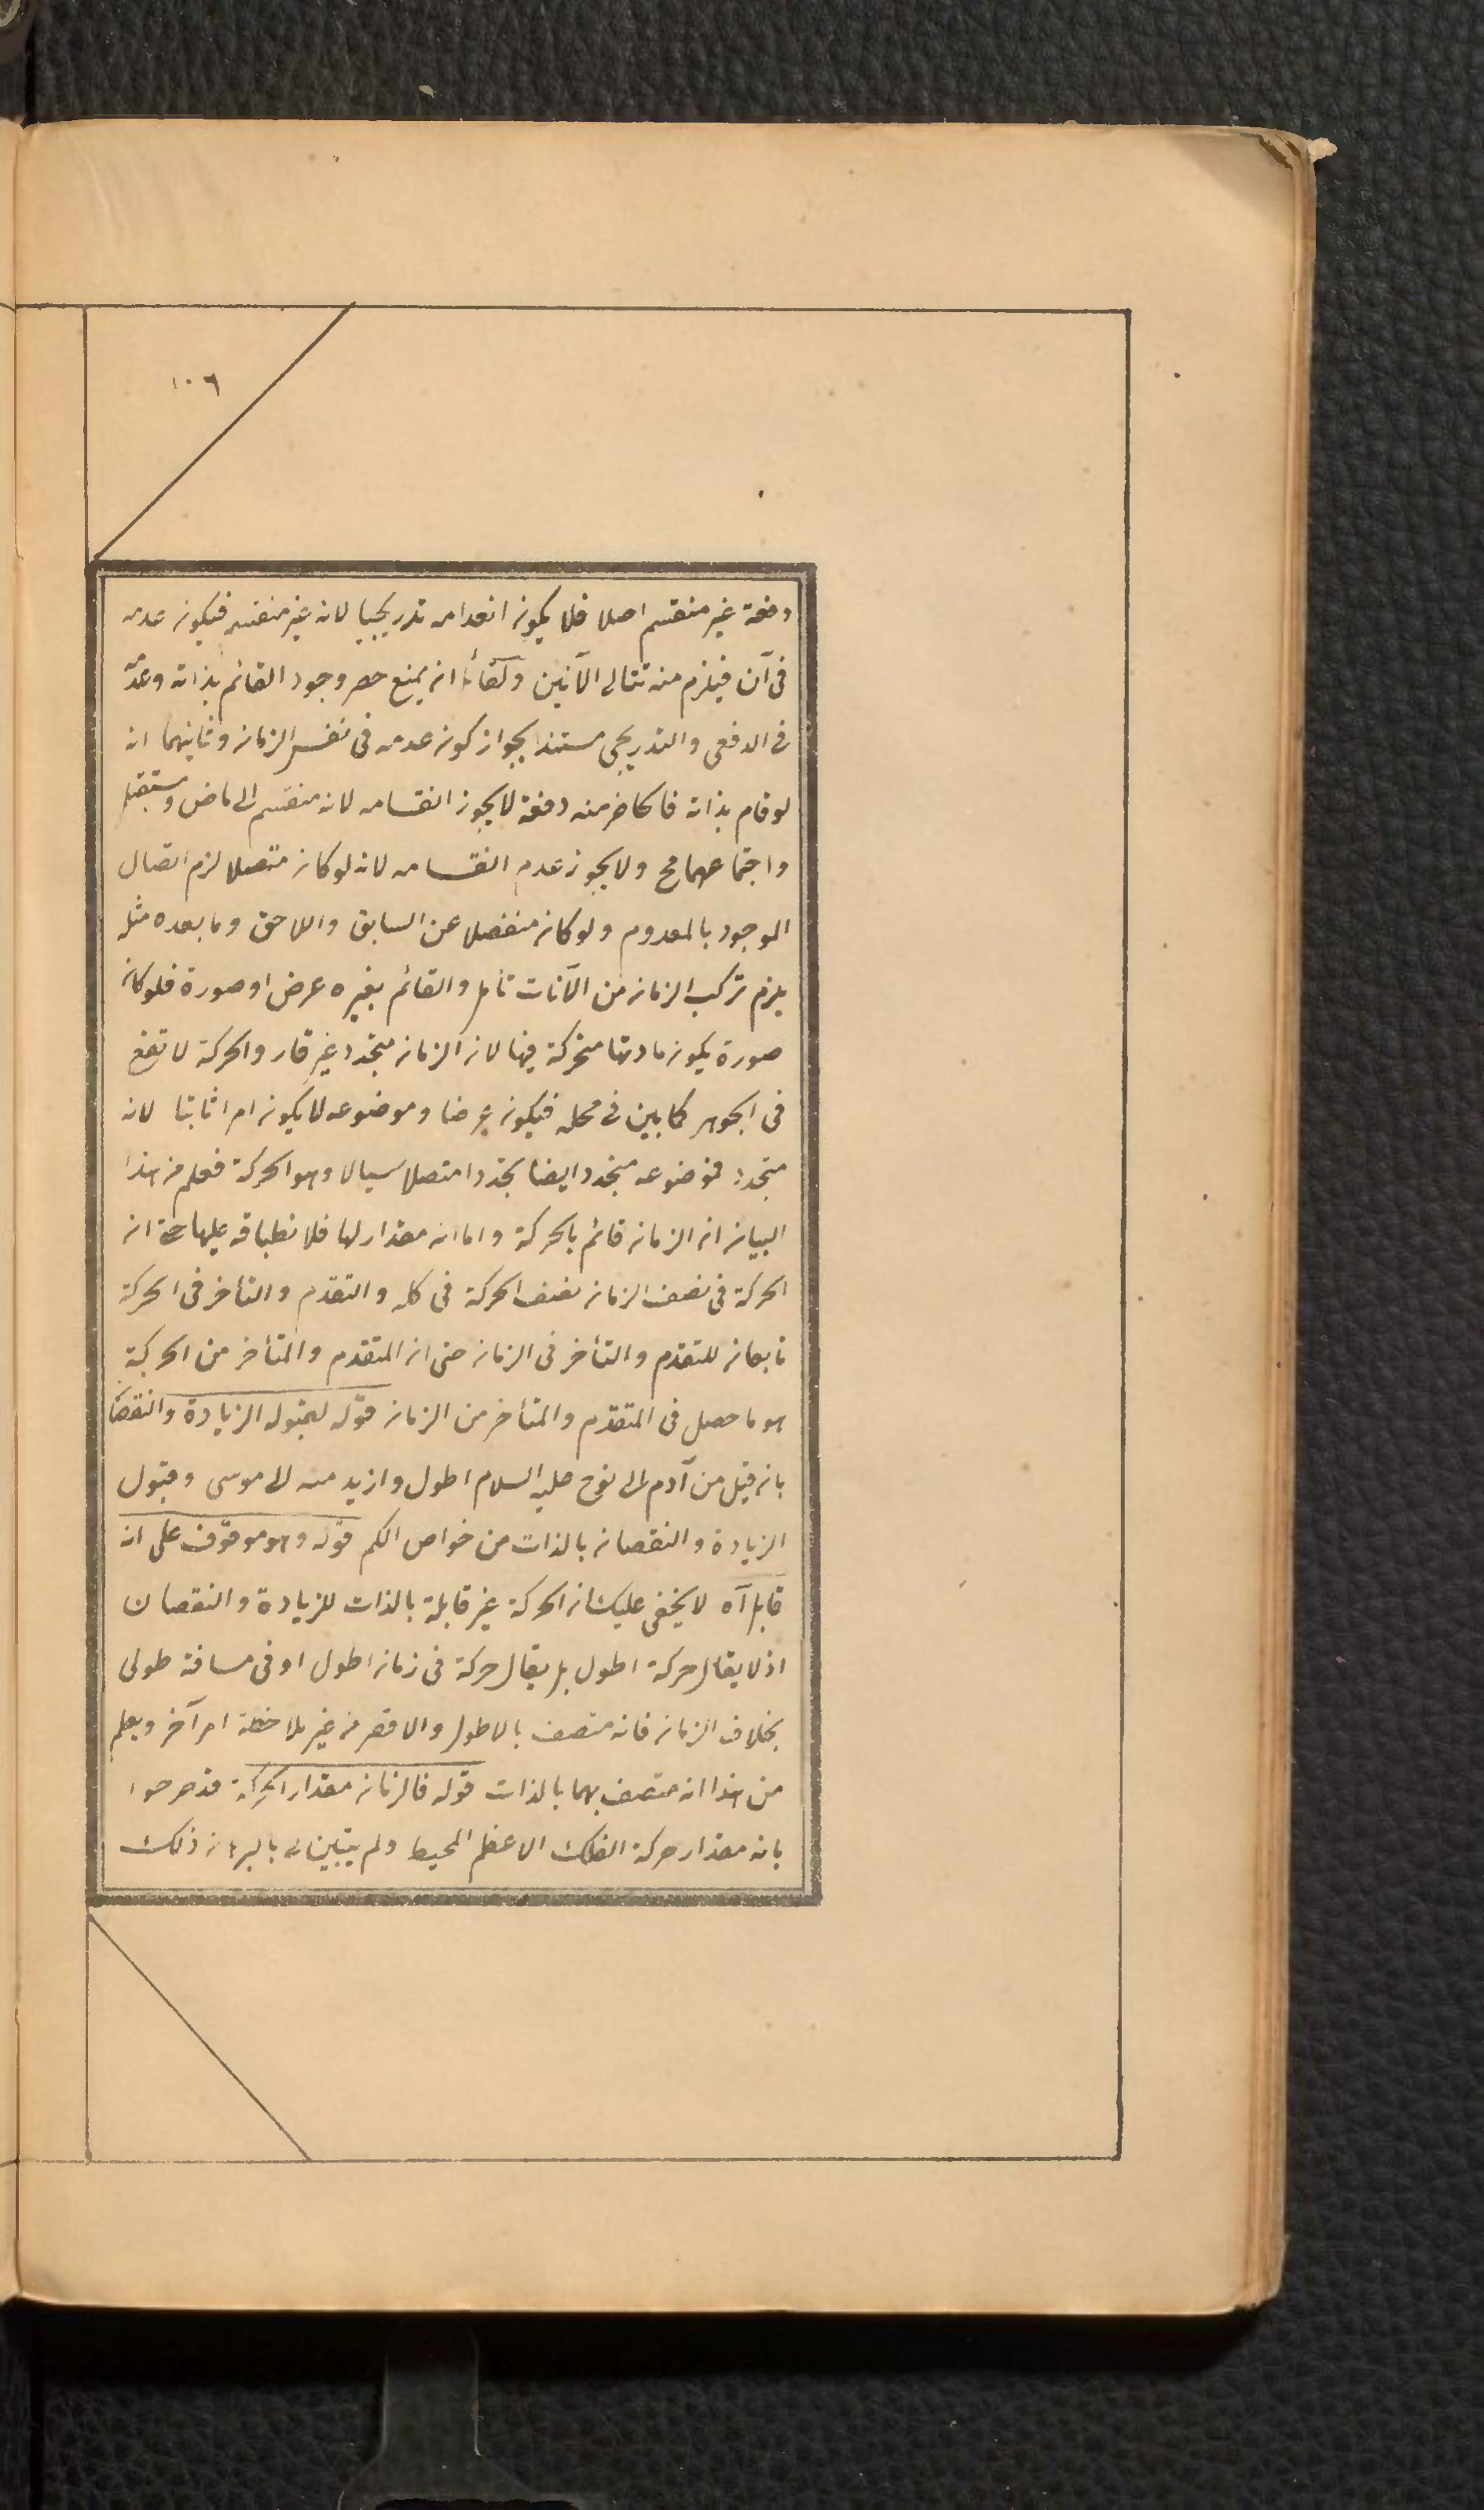 ١٠٦
دفعة غير منقسم اصلا فلا يكون انعدامه تدريجيا لانه غير منقسم فيكون عدمه
فى آن فيلزم منه تتالى الآنين ولقائل ان يمنع حصر وجود القائم بذاته وعدمه
فى الدفعى والتدريجى مستندا بجواز كون عدمه فى نفس الزمان وثانيهما انه
لو قام بذاته فالحاضر منه دفعة لا يجوز انقسامه لانه منقسم الى ماض ومستقبل
واجتماعهما مح ولا يجوز عدم انقسامه لانه لو كان متصلا لزم اتصال
الموجود بالمعدوم ولو كان منفصلا عن السابق واللاحق وما بعده مثله
يلزم تركب الزمان من الآنات تأمل والقائم بغيره عرض او صورة فلو كان
صورة يكون مادتها متحركة فيها لان الزمان متجدد غير قار والحركة لا تقع
فى الجوهر كما بين فى محله فيكون عرضا وموضوعه لا يكون امرا ثابتا لانه
متجدد فموضوعه متجدد ايضا تجددا متصلا سيالا وهو الحركة فعلم من هذا
البيان ان الزمان قائم بالحركة واما انه مقدار لها فلانطباقه عليها حتى ان
الحركة فى نصف الزمان نصف الحركة فى كله والتقدم والتأخر فى الحركة
تابعان للتقدم والتأخر فى الزمان حتى ان المتقدم والمتأخر من الحركة
هو ما حصل فى المتقدم والمتأخر من الزمان قوله لقبوله الزيادة والنقصان
بانه قيل من آدم الى نوح عليه السلام اطول وازيد منه الى موسى وقبول
الزيادة والنقصان بالذات من خواص الكم قوله وهو موقوف على انه
قابل آه لا يخفى عليك ان الحركة غير قابلة بالذات للزيادة والنقصان
اذ لا يقال حركة اطول بل يقال حركة فى زمان اطول او فى مسافة طولى
بخلاف الزمان فانه متصف بالاطول والاقصر من غير ملاحظة امر آخر ويعلم
من هذا انه متصف بهما بالذات قوله فالزمان مقدار الحركة قد صرحوا
بانه مقدار حركة الفلك الاعظم المحيط ولم يتبين له بالبرهان ذلك